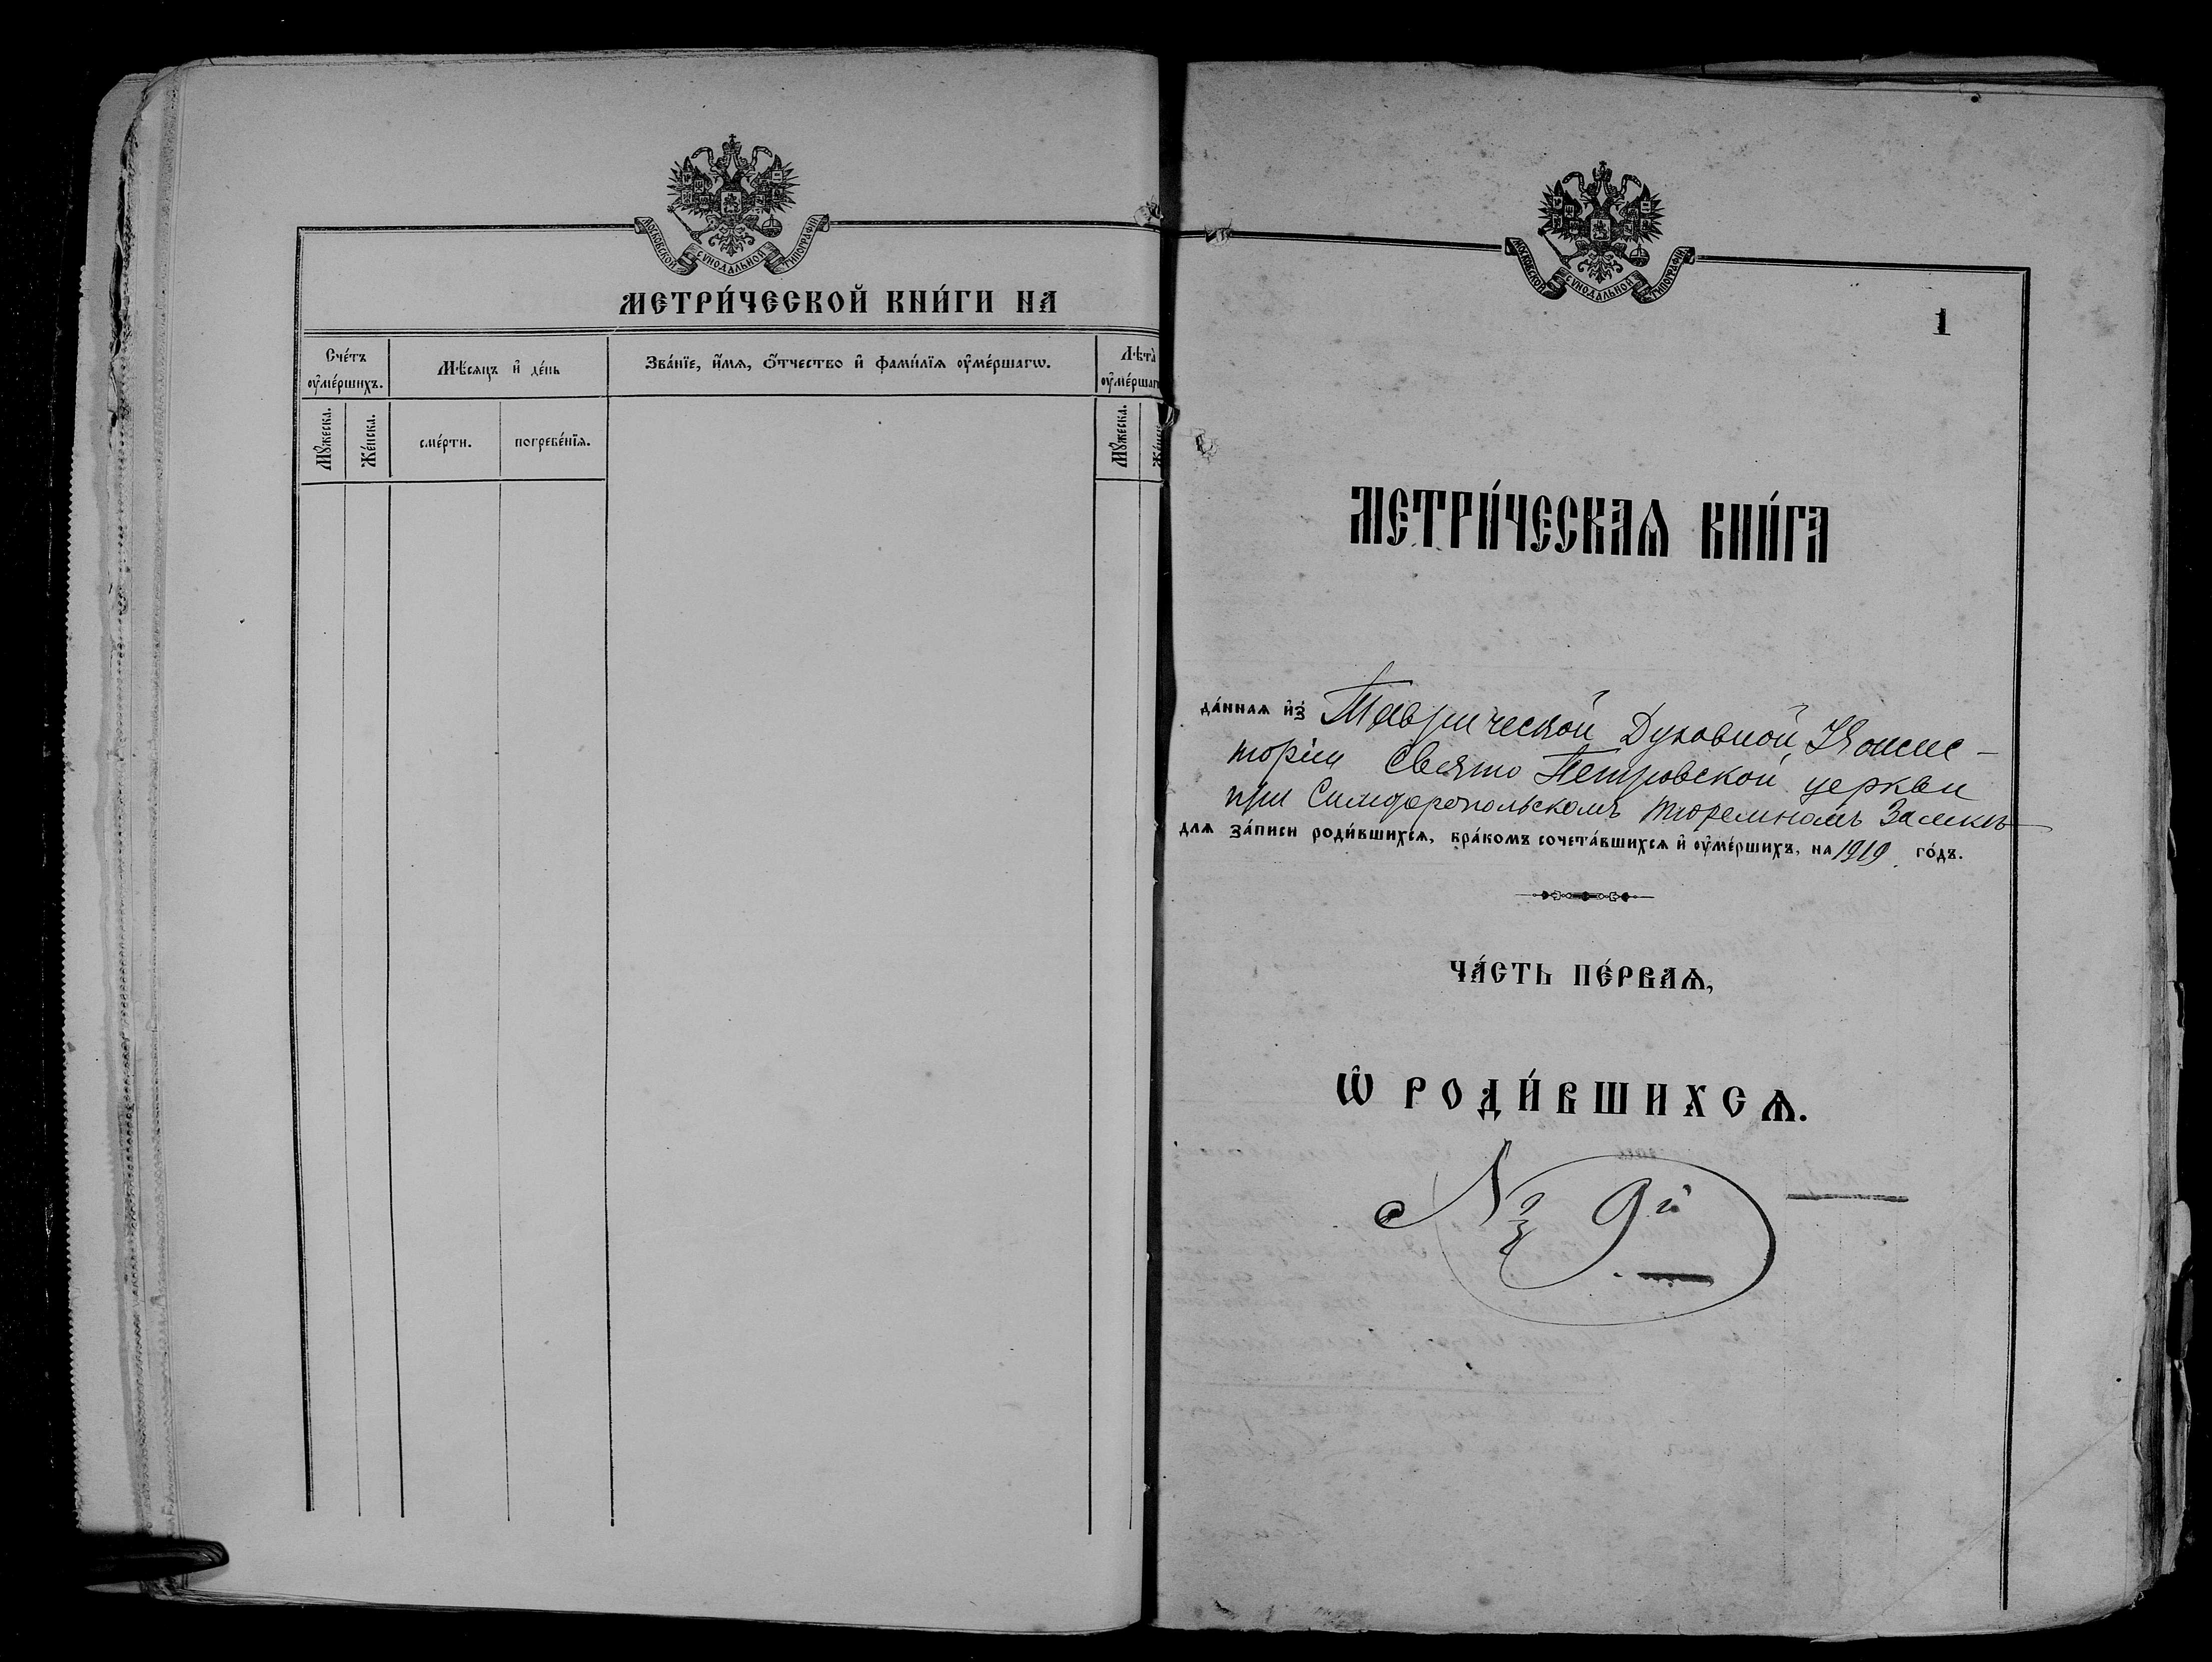 МОСКОВСКОЙ СѴНОДАЛЬНОЙ ТИПОГРАФІИ
МЕТРИ́ЧЕСКОЙ КНИ́ГИ НА
Сче́тъ ᲂу҆ме́ршихъ.
Мѣ́сяцъ и҆ де́нь
Зва́нїе, и҆́мѧ, ѻ҆́тчество и҆ фами́лїѧ ᲂу҆ме́ршагѡ.
Лѣта̀ ᲂу҆ме́ршаг
Мꙋ́жеска.
Же́нска.
сме́рти.
погребе́нїѧ.
Мꙋ́жеска.
Же́нск
МОСКОВСКОЙ СѴНОДАЛЬНОЙ ТИПОГРАФІИ
1
МЕТРИ́ЧЕСКАѦ КНИ́ГА
да́ннаѧ и҆з̾ Таврической Духовной Консис-
торіи Свято Петровской церкви
при Симферопольскомъ тюремномъ Замкѣ
длѧ за́писи роди́вшихсѧ, бра́комъ сочета́вшихсѧ и҆ ᲂу҆ме́ршихъ, на 1919 го́дъ.
ЧА́СТЬ ПЕ́РВАѦ,
Ѡ҆ РОДИ́ВШИХСѦ.
№ 9й